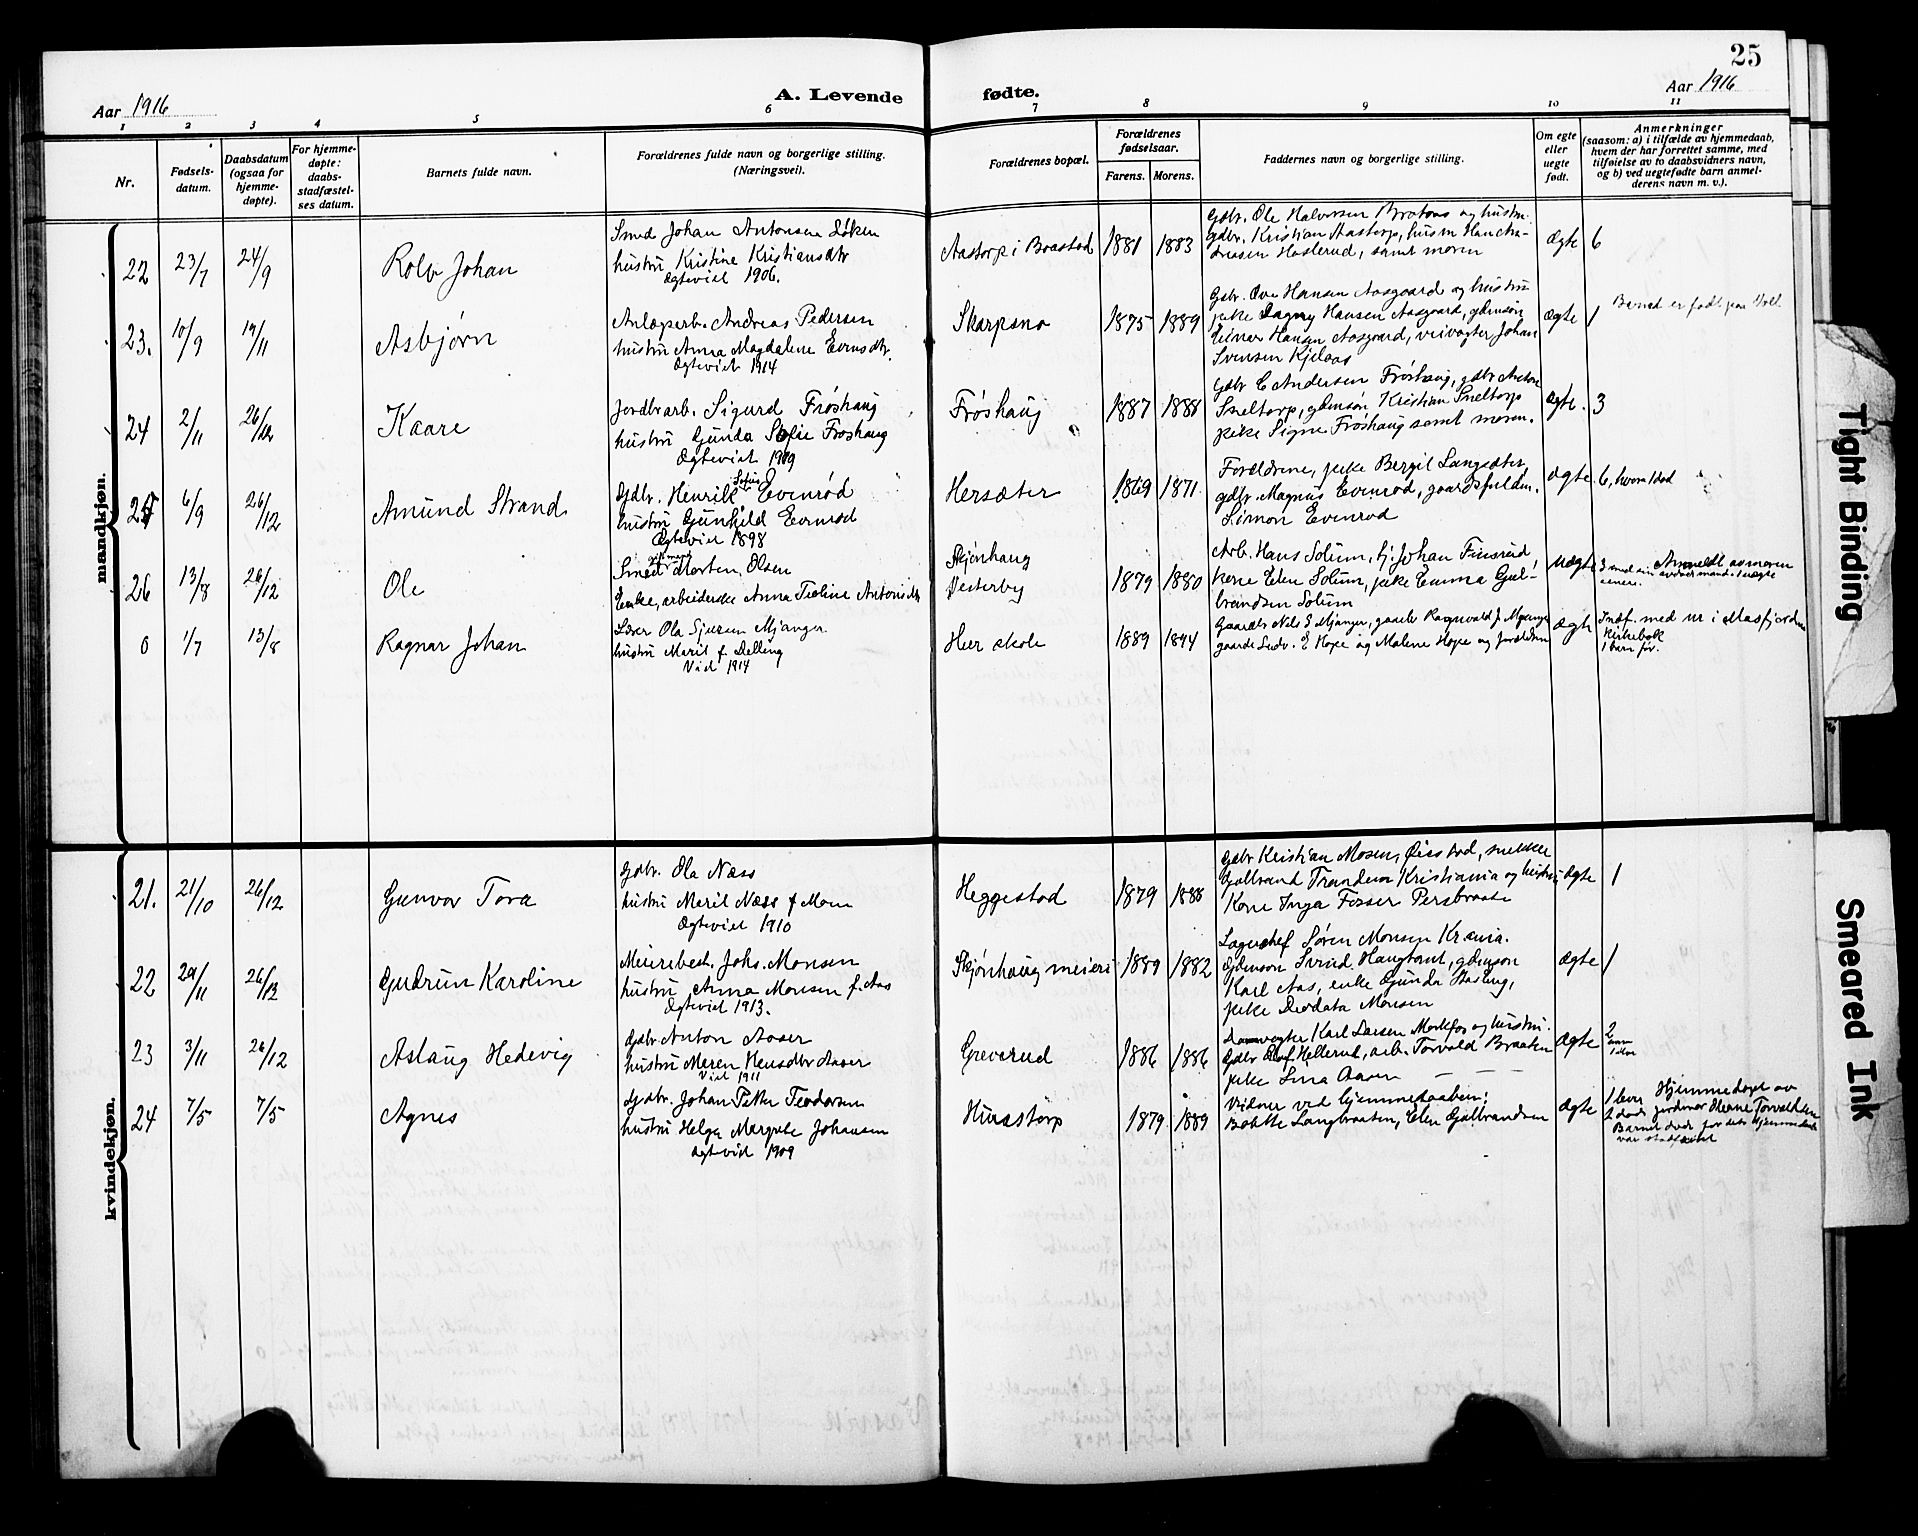 25
Aar 1916
A. Levende
fødte.
Aar 1916
1 2 3 4 5 6 7 8 9 10 11
Nr.
Fødsels-
datum.
Daabsdatum
(ogsaa for
hjemme-
døpte).
For hjemme-
døpte:
daabs-
stadfæstel-
ses datum.
Barnets fulde navn.
Forældrenes fulde navn og borgerlige stilling.
(Næringsvei).
Forældrenes bopæl.
Forældrenes
fødselsaar.
Farens. Morens.
Faddernes navn og borgerlige stilling.
Om egte
eller
uegte
født.
Anmerkninger
(saasom: a) i tilfælde av hjemmedaab,
hvem der har forrettet samme, med
tilføielse av to daabsvidners navn,
og b) ved uegtefødte barn anmel-
derens navn m. v.).
mandkjøn.
22 23/7 24/9 Rolv Johan
Smed Johan Antonsen Løken
hustru Kristine Kristiansdtr
Ægteviet 1906.
Aastorp i Braastad 1881 1883
Gdbr. Ole Halvorsen Brataas og hustru
gdbr. Kristian Aastorp, husm Hans
Haslerud, samt moren
Ægte 6
23. 10/9 19/11 Asbjørn
Anlægsarb. Andreas Pedersen
hustru Anna Magdalene Evensdtr.
Ægteviet 1914
Skarpsno 1875 1889
Gdbr. Ove Hansen Aasgaard og hustru
pike Dagny Hansen Aasgaard, gdmsøn
Einar Hansen Aasgaard, veivogter Johan
Svensen Kjelaas
Ægte 1 Barnet er født paa
24 2/11 26/12 Kaare
Jordbrarb. Sigurd Frøshaug
hustru Gunda Sofie Frøshaug
Ægteviet 1909
Frøshaug 1887 1888
Gdbr C Andersen Frøshaug, gdbr Anton
Sneltorp, gdmsøn Kristian Sneltorp
pike Signe Frøshaug samt moren.
Ægte. 3
25 6/9 26/12 Amund Strand
Gdbr. Henrik Evenrød
hustru Gunhild Evenrød
Ægteviet 1898
Hersæter 1869 1871
Forældrene, pike Bergit Langsæter
gdbr. Magnus Evenrod, gaardsfuldm.
Simon Evenrod
Ægte 6, hvorav 1 død
26 13/8 26/12 Ole
gift mand
Smed Morten Olsen
Enke, arbeiderske Anna Teoline Antonsdtr
Skjønhaug
Vesterby 1879 1880
Arb. Hans Solum, tj. Johan Finsrud
kone Elen Solum, pike Emma Gul-
brandsen Solum
Uægte Anmeldt av moren
0 1/7 13/8 Ragnar Johan
Lærer Ola Sjursen Mjanger
hustru Marit f. Delling
Viet 1914
Heer skole 1889 1894
Gaardbr Nils S Mjanger, gaarbr Ragnvald J. Mjanger
gaardbr Ludv. E Hope og Malene Hope og forældrene
Ægte Indf. med nr i Masfjorden
Kirkebok
1 barn før.
kvindekjøn.
21. 21/10 26/12 Gunvor Tora
Gdbr. Ola Næss
hustru Marit Næss f Moen
Ægteviet 1910
Heggestad 1879 1888
Gdbr Kristian Mosen, Øiestad, snekker
Gulbrand Trandem Kristiania og hustru
Kone Inga Fosser Persbraate
Ægte 1
22 29/11 26/12 Gudrun Karoline
Meieribest. Johs. Monsen
hustru Anna Monsen f. Aas
Ægteviet 1913.
Skjønhaug meieri 1889 1882
Lagerchef Søren Monsen Kr.ania.
Gdmson Svend Haugtomt, gdmson
Karl Aas, enke Gunda Hasling,
pike Deodata Monsen
Ægte 1
23 3/11 26/12 Aslaug Hedevig
Gdbr Anton Aaser
hustru Maren Hansdtr Aaser
Viet 1911
Greverud 1886 1886
Damvogter Karl Larsen Mørkfos og hustru.
Gdbr Olaf Hellerud, arb. Torvald Braaten
pike Lina Aasen
Ægte 2
24 7/5 7/5 Agnes
Gdbr. Johan Petter Teodorsen
hustru Helga Margrete Johansen
Ægteviet 1909
Huastorp 1879 1889
Vidner ved hjemmedaaben:
Bolette Langbraaten, Elen Gulbrandsen
Ægte 1 lever Hjemmedøpt av
2 døde jordmor Marie Torvaldsen
Barnet døde før dets hjemmedaab
var stadfæstet
Tight Binding
Smeared Ink